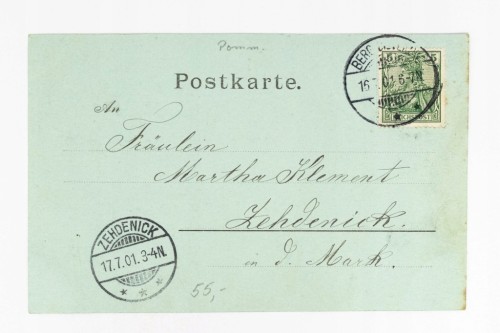 Pomm.
Postkarte.
16.7.01.6-7N.
An
Fräulein
Martha Klement
Zehdenick.
in d. Mark.
ZEHDENICK
17.7.01.3-4N.
55,-